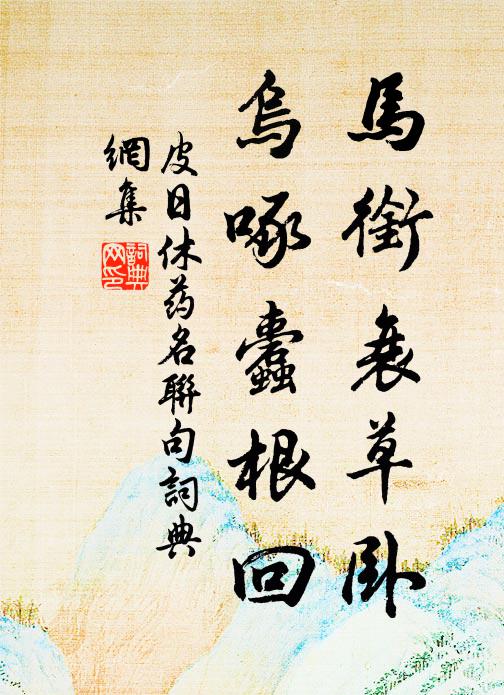 馬銜衰草臥
烏啄蠹根回
皮日休药名聯句詞典
網集
詞典网印